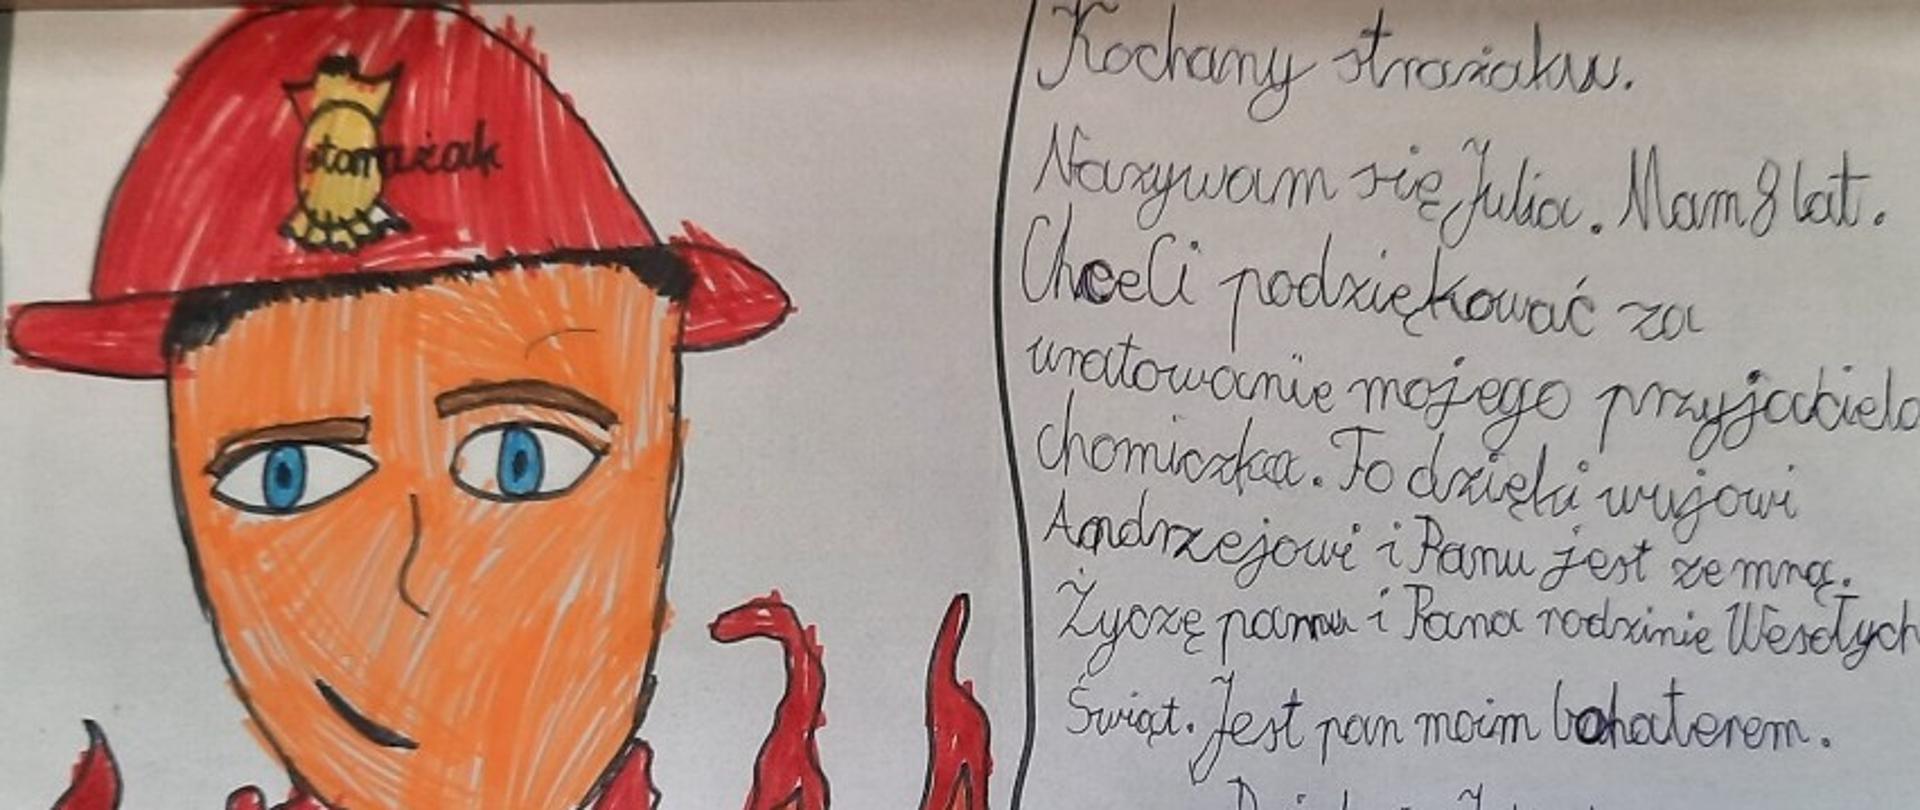 starażak
Kochany strażaku.
Nazywam się Julia. Mam 8 lat.
Chceli podziękować za
uratowanie mojego przyjaciela
chomiczka. To dzięki wujowi
Andrzejowi i Panu jest ze mną.
Życzę panu i Pana rodzinie Wesołych
Świąt. Jest pan moim bohaterem.